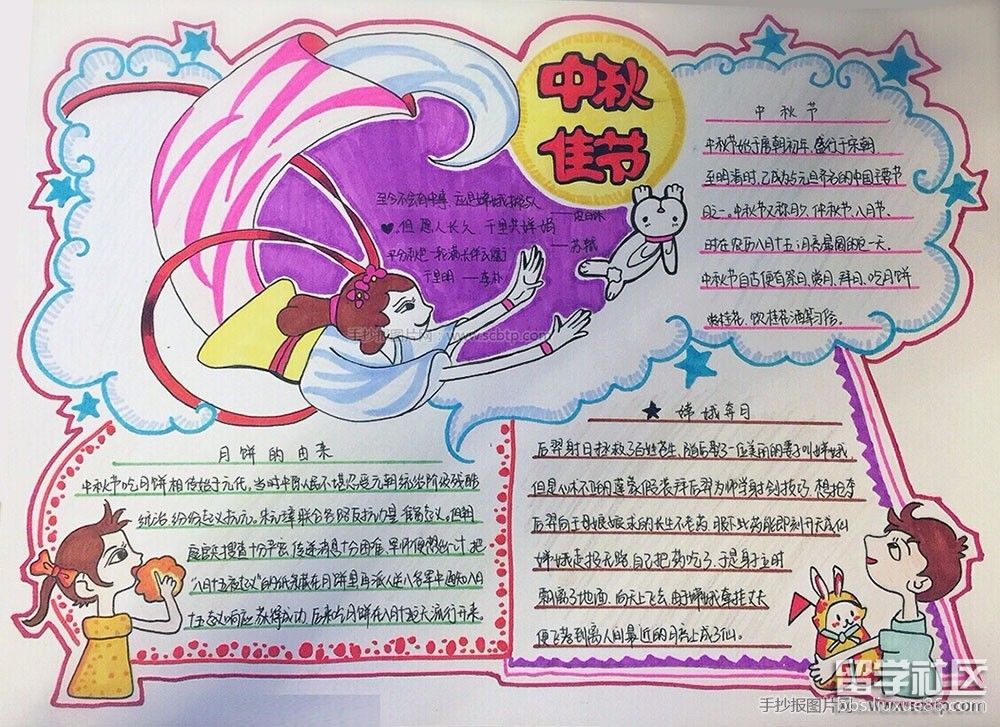 中秋
佳节
至今不会自中事,应是嫦娥掷与人
但愿人长久 千里共婵娟
——苏轼
平分秋色一轮满长伴云衢
千里明 ——李朴
手抄报图片网:www.scbtp.com
中秋节
中秋节始于唐朝初年,盛行于宋朝,
至明清时,已成为与元旦齐名的中国主要节
日之一。中秋节又称月夕、仲秋节、八月节。
时在农历八月十五;月亮最圆的一天。
中秋节自古便有祭月、赏月、拜月、吃月饼
赏桂花、饮桂花酒等习俗。
月饼的由来
中秋节吃月饼相传始于元代。当时中原人民不堪忍受元朝统治阶级残酷
统治 纷纷起义抗元。朱元璋联合各路反抗力量准备起义。但朝
庭官兵搜查十分严密,传递消息十分困难,军师便想出一计,把
“八月十五夜起义”的纸条藏在月饼里再派人送入各军中通知八月
十五起义响应 获得成功 后来吃月饼在八月十五天流行开来。
嫦娥奔月
后羿射日拯救了百姓苍生,随后娶了一位美丽的妻子叫嫦娥
但是心术不正的蓬蒙假装拜后羿为师学射剑技巧,想抢夺
后羿向王母娘娘求的长生不老药,服下此药能即刻升天成仙
嫦娥走投无路自己把药吃了,于是身子立时
飘离了地面,向天上飞去由于嫦娥牵挂丈夫
便飞落到离人间最近的月亮上成了仙。
留学社区
手抄报图片网
bbs.liuxue86.com